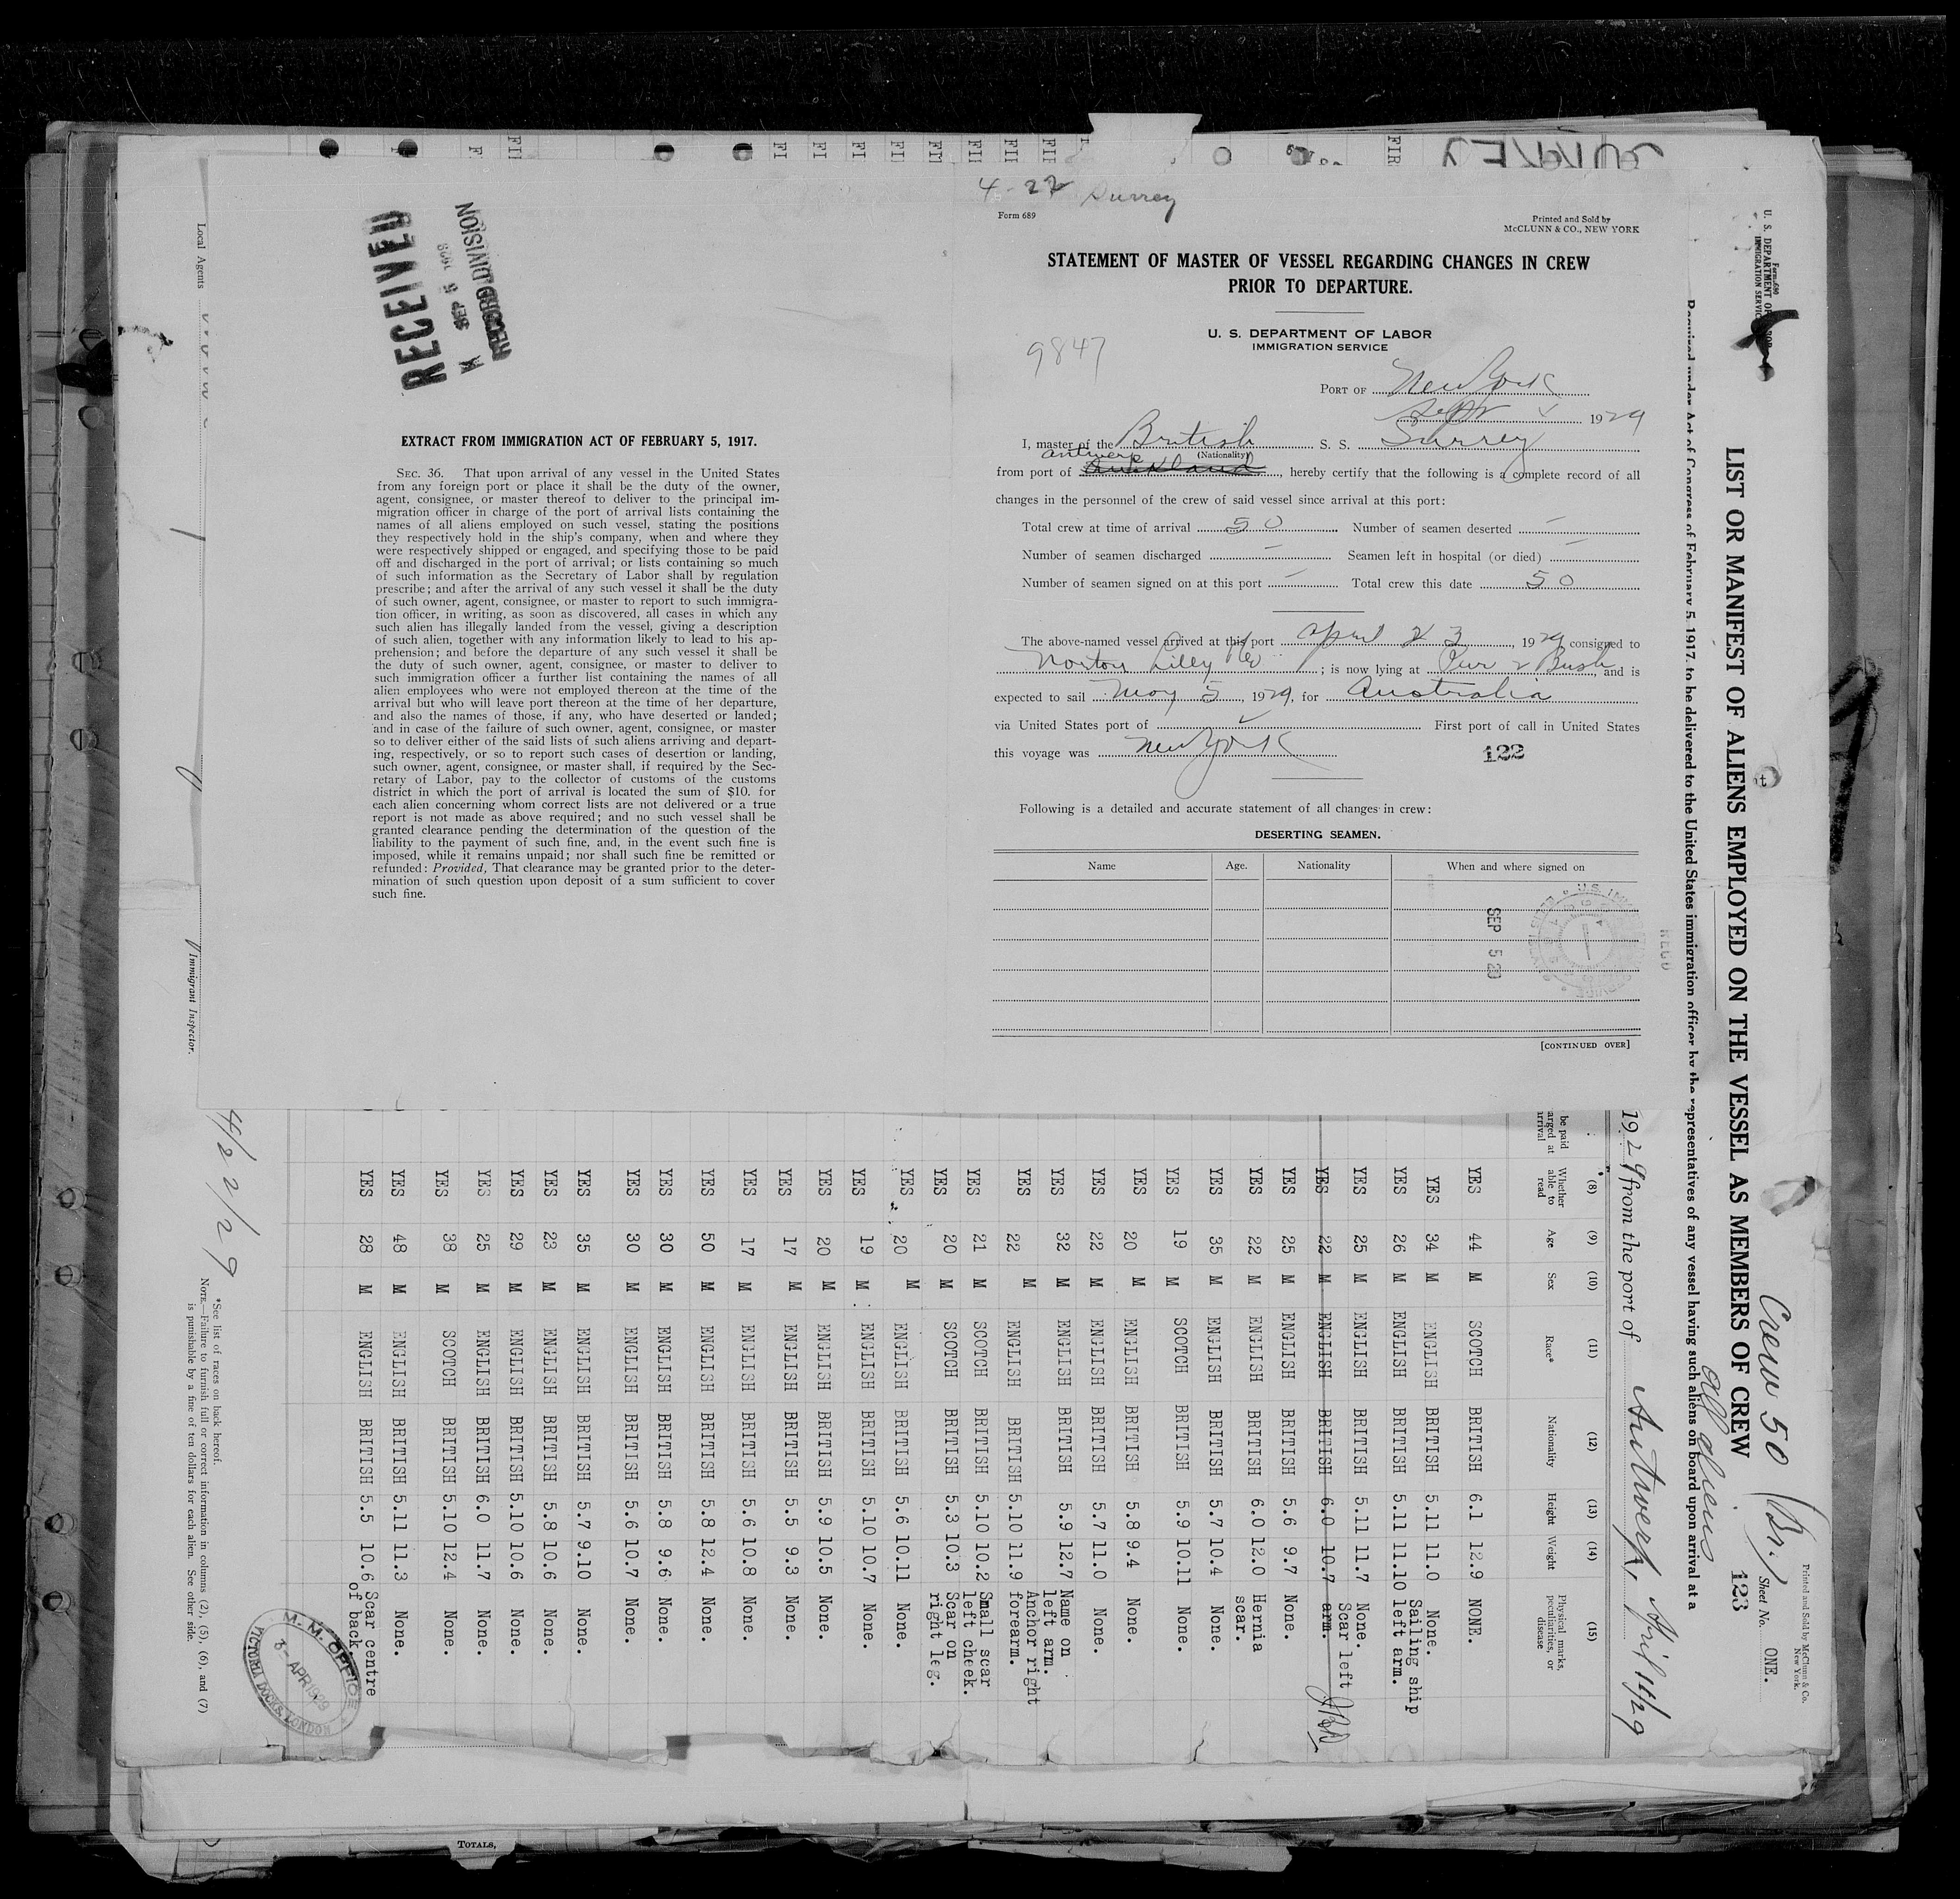 4-22 Surrey
Form 689
Printed and Sold by
McCLUNN & CO., NEW YORK
STATEMENT OF MASTER OF VESSEL REGARDING CHANGES IN CREW
PRIOR TO DEPARTURE.
U. S. DEPARTMENT OF LABOR
IMMIGRATION SERVICE
9847
PORT OF New York
Sept 4 1929
I, master of the British S. S. Surrey
(Nationality)
Antwerp
from port of Auckland, hereby certify that the following is a complete record of all
changes in the personnel of the crew of said vessel since arrival at this port:
Total crew at time of arrival 50 Number of seamen deserted —
Number of seamen discharged — Seamen left in hospital (or died) —
Number of seamen signed on at this port — Total crew this date 50
The above-named vessel arrived at this port April 23, 1929 consigned to
Norton Lilly Co; is now lying at Pier 2 Bush, and is
expected to sail May 5, 1929, for Australia
via United States port of First port of call in United States
this voyage was New York
122
Following is a detailed and accurate statement of all changes in crew:
DESERTING SEAMEN.
Name Age. Nationality When and where signed on
SEP 5 29
[CONTINUED OVER]
RECEIVED
SEP 5
RECORD DIVISION
EXTRACT FROM IMMIGRATION ACT OF FEBRUARY 5, 1917.
SEC. 36. That upon arrival of any vessel in the United States
from any foreign port or place it shall be the duty of the owner,
agent, consignee, or master thereof to deliver to the principal im-
migration officer in charge of the port of arrival lists containing the
names of all aliens employed on such vessel, stating the positions
they respectively hold in the ship's company, when and where they
were respectively shipped or engaged, and specifying those to be paid
off and discharged in the port of arrival; or lists containing so much
of such information as the Secretary of Labor shall by regulation
prescribe; and after the arrival of any such vessel it shall be the duty
of such owner, agent, consignee, or master to report to such immigra-
tion officer, in writing, as soon as discovered, all cases in which any
such alien has illegally landed from the vessel, giving a description
of such alien, together with any information likely to lead to his ap-
prehension; and before the departure of any such vessel it shall be
the duty of such owner, agent, consignee, or master to deliver to
such immigration officer a further list containing the names of all
alien employees who were not employed thereon at the time of the
arrival but who will leave port thereon at the time of her departure,
and also the names of those, if any, who have deserted or landed;
and in case of the failure of such owner, agent, consignee, or master
so to deliver either of the said lists of such aliens arriving and depart-
ing, respectively, or so to report such cases of desertion or landing,
such owner, agent, consignee, or master shall, if required by the Sec-
retary of Labor, pay to the collector of customs of the customs
district in which the port of arrival is located the sum of $10. for
each alien concerning whom correct lists are not delivered or a true
report is not made as above required; and no such vessel shall be
granted clearance pending the determination of the question of the
liability to the payment of such fine, and, in the event such fine is
imposed, while it remains unpaid; nor shall such fine be remitted or
refunded: Provided, That clearance may be granted prior to the deter-
mination of such question upon deposit of a sum sufficient to cover
such fine.
Form 689
U. S. DEPARTMENT OF LABOR
IMMIGRATION SERVICE
Crew 50 (Br.)
all aliens
Printed and Sold by McClunn & Co.
New York.
Sheet No. ONE.
123
LIST OR MANIFEST OF ALIENS EMPLOYED ON THE VESSEL AS MEMBERS OF CREW
Required under Act of Congress of February 5, 1917, to be delivered to the United States immigration officer by the representatives of any vessel having such aliens on board upon arrival at a
1929 from the port of Antwerp, April 14/29
(8) (9) (10) (11) (12) (13) (14) (15)
Whether able to read Age Sex Race* Nationality Height Weight Physical marks, peculiarities, or disease
YES 44 M SCOTCH BRITISH 6.1 12.9 NONE.
YES 34 M ENGLISH BRITISH 5.11 11.0 None.
YES 26 M ENGLISH BRITISH 5.11 11.10 Sailing ship left arm.
YES 25 M ENGLISH BRITISH 5.11 11.7 None.
YES 22 M ENGLISH BRITISH 6.0 10.7 Scar left arm.
YES 25 M ENGLISH BRITISH 5.6 9.7 None.
YES 22 M ENGLISH BRITISH 6.0 12.0 Hernia scar.
YES 35 M ENGLISH BRITISH 5.7 10.4 None.
YES 19 M SCOTCH BRITISH 5.9 10.11 None.
YES 20 M ENGLISH BRITISH 5.8 9.4 None.
YES 22 M ENGLISH BRITISH 5.7 11.0 None.
YES 32 M ENGLISH BRITISH 5.9 12.7 Name on left arm.
YES 22 M ENGLISH BRITISH 5.10 11.9 Anchor right forearm.
YES 21 M SCOTCH BRITISH 5.10 10.2 Small scar left cheek.
YES 20 M SCOTCH BRITISH 5.3 10.3 Scar on right leg.
YES 20 M ENGLISH BRITISH 5.6 10.11 None.
YES 19 M ENGLISH BRITISH 5.10 10.7 None.
YES 20 M ENGLISH BRITISH 5.9 10.5 None.
YES 17 M ENGLISH BRITISH 5.5 9.3 None.
YES 17 M ENGLISH BRITISH 5.6 10.8 None.
YES 50 M ENGLISH BRITISH 5.8 12.4 None.
YES 30 M ENGLISH BRITISH 5.8 9.6 None.
YES 30 M ENGLISH BRITISH 5.6 10.7 None.
YES 35 M ENGLISH BRITISH 5.7 9.10 None.
YES 23 M ENGLISH BRITISH 5.8 10.6 None.
YES 29 M ENGLISH BRITISH 5.10 10.6 None.
YES 25 M ENGLISH BRITISH 6.0 11.7 None.
YES 38 M SCOTCH BRITISH 5.10 12.4 None.
YES 48 M ENGLISH BRITISH 5.11 11.3 None.
YES 28 M ENGLISH BRITISH 5.5 10.6 Scar centre of back.
4/22/29
*See list of races on back hereof.
NOTE.—Failure to furnish full or correct information in columns (2), (5), (6), and (7)
is punishable by a fine of ten dollars for each alien. See other side.
M. M. OFFICE
APR 1929
VICTORIA DOCKS, LONDON
Local Agents
Immigrant Inspector.
TOTALS,